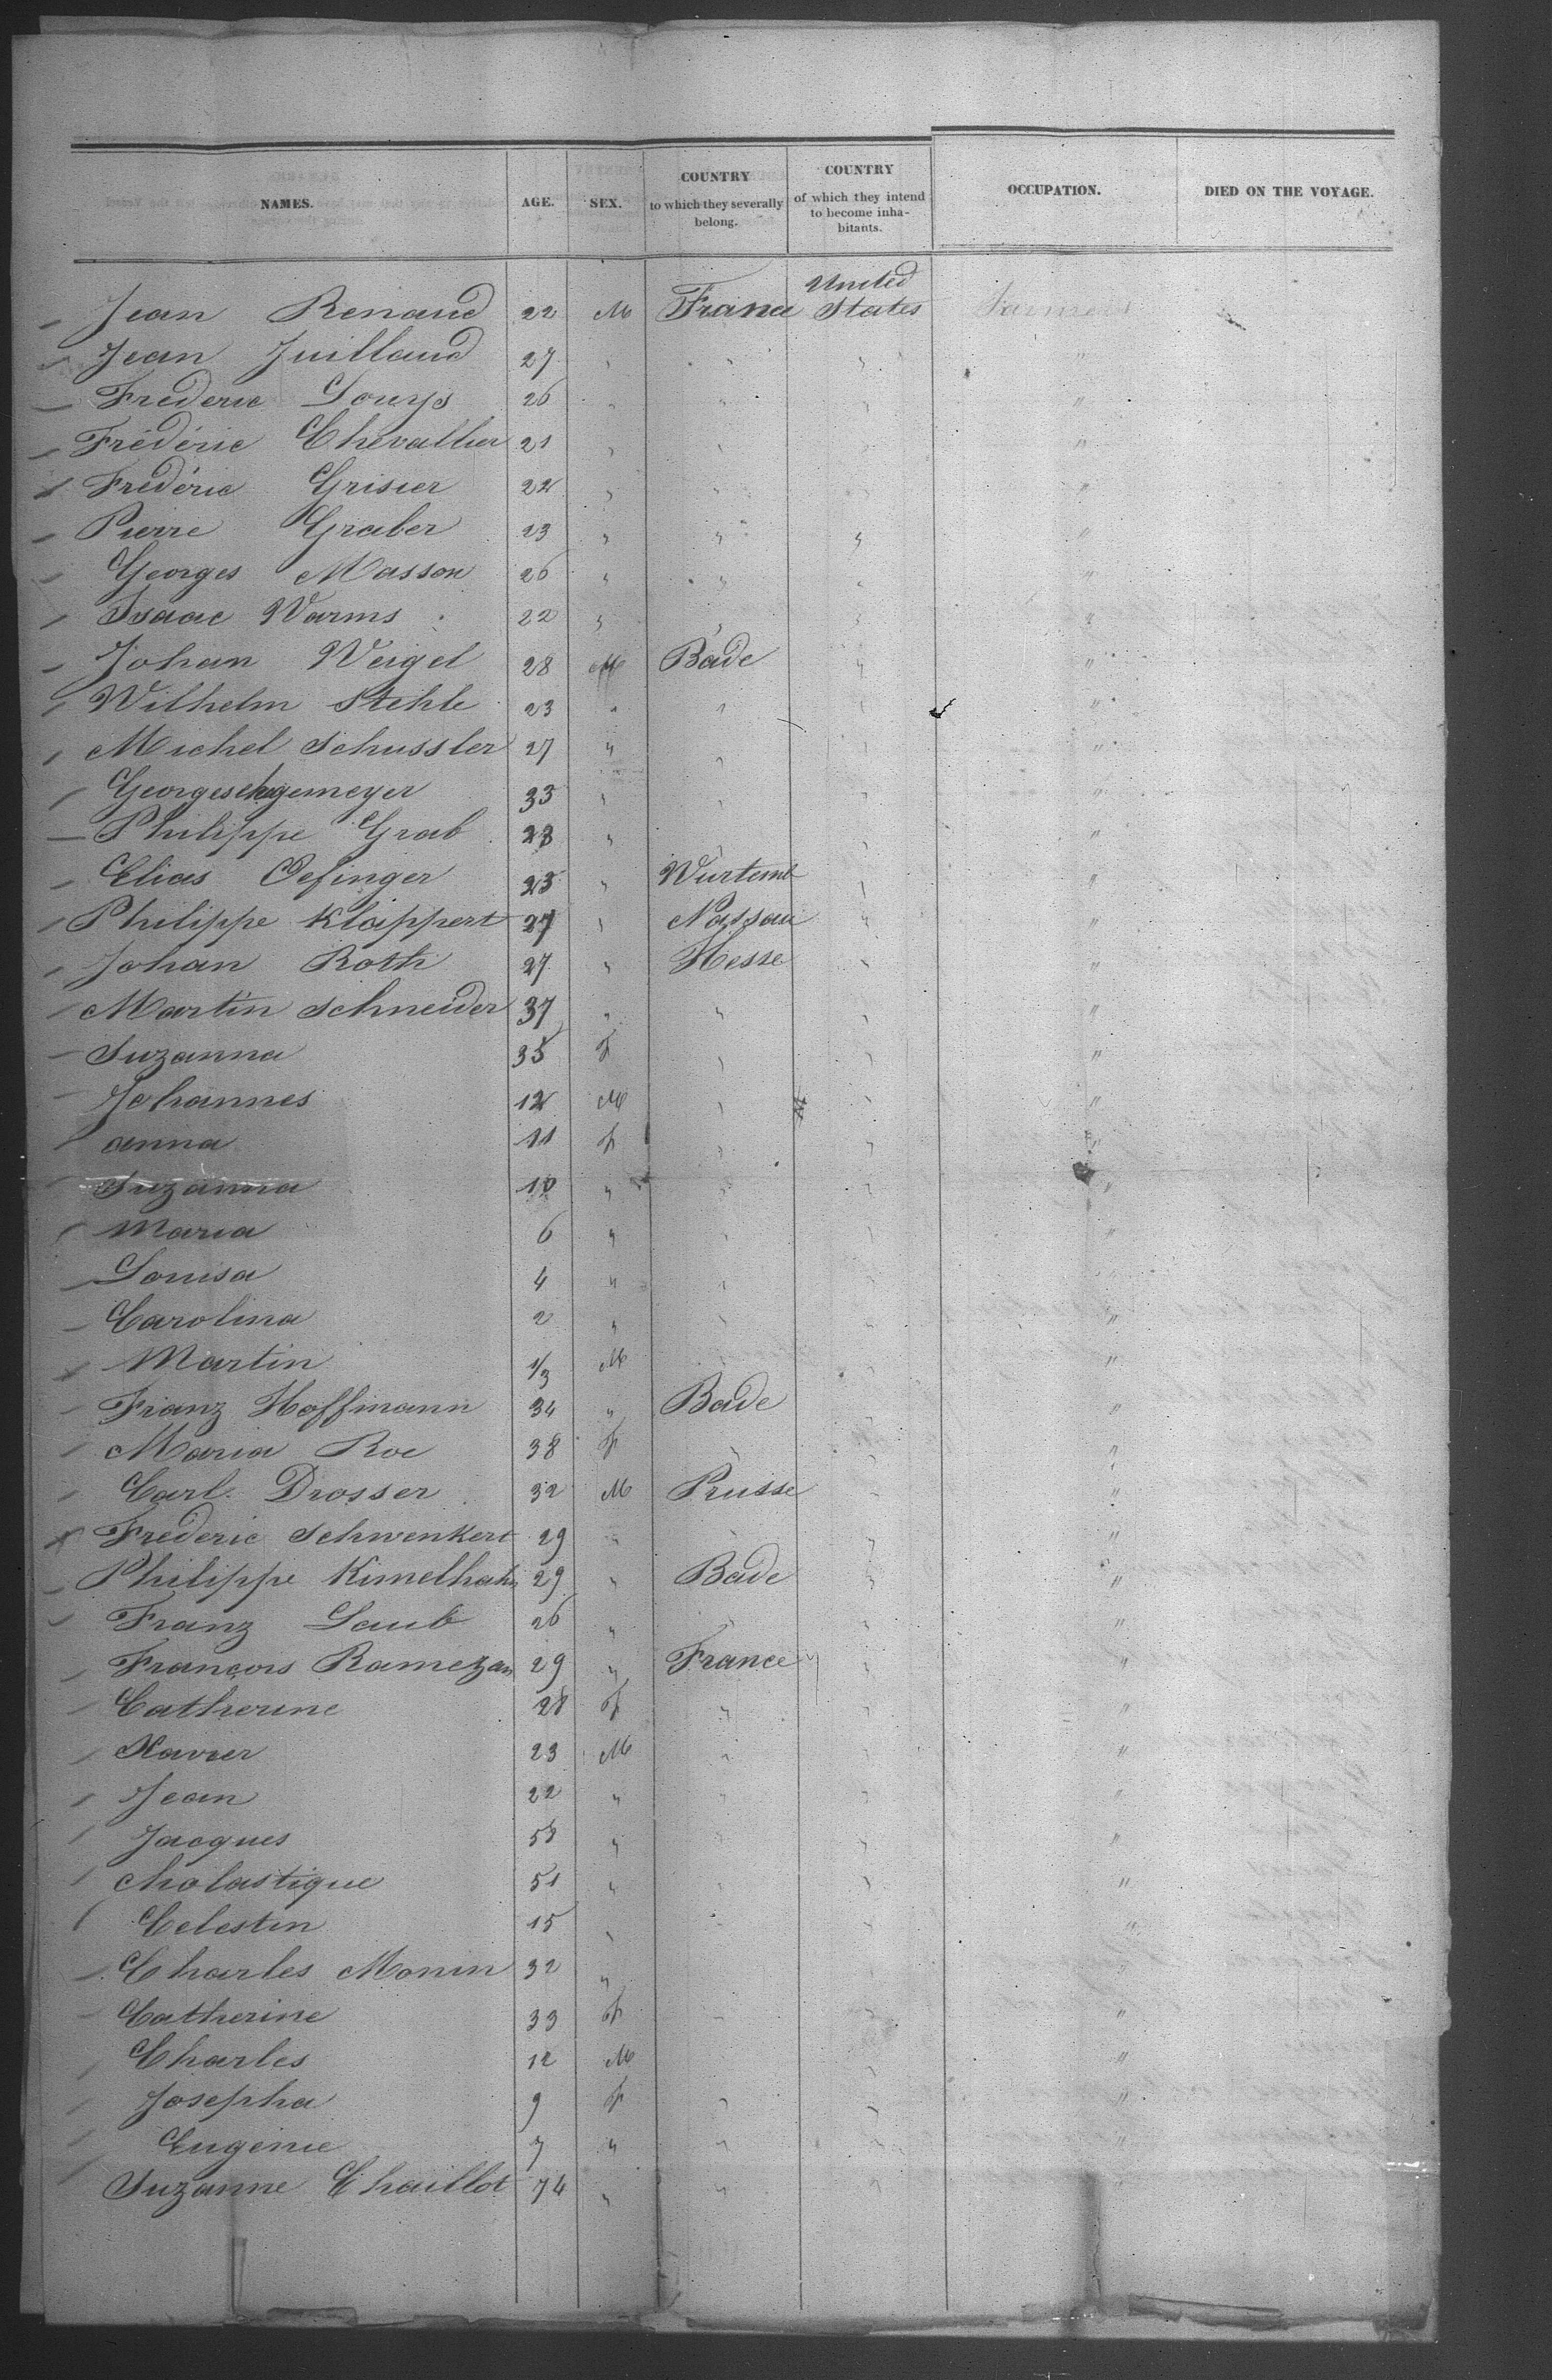 NAMES. AGE. SEX. COUNTRY to which they severally belong. COUNTRY of which they intend to become inhabitants. OCCUPATION. DIED ON THE VOYAGE.
Jean Renaud 22 M France United States Farmers
Jean Juillaud 27 " " " "
Frederic Louys 26 " " " "
Frédéric Chevallier 21 " " " "
Frédéric Grisier 22 " " " "
Pierre Graber 23 " " " "
Georges Masson 26 " " " "
Isaac Warms 22 " " " "
Johan Weigel 28 M Bade " "
Wilhelm Stehle 23 " " " "
Michel Schussler 27 " " " "
Georges 33 " " " "
Philippe Grab 28 " " " "
Elias Oefinger 25 " Wurtemb " "
Philippe Klappert 27 " Nassau " "
Johan Roth 27 " Hesse " "
Martin Schneider 37 " " " "
Suzanna 35 F " " "
Johannes 12 M " " "
Anna 11 F " " "
Suzanna 10 " " " "
Maria 6 " " " "
Louisa 4 " " " "
Carolina 2 " " " "
Martin 1/3 M " " "
Franz Hoffmann 34 " Bade " "
Maria Roe 38 F " " "
Carl Drosser 32 M Prusse " "
Frederic Schwenkert 29 " " " "
Philippe Kimelhahn 29 " Bade " "
Franz Laub 26 " " " "
François Ramezan 29 " France " "
Catherine 28 F " " "
Xavier 23 M " " "
Jean 22 " " " "
Jacques 58 " " " "
cholastique 51 " " " "
Celestin 15 " " " "
Charles Monin 32 " " " "
Catherine 33 F " " "
Charles 12 M " " "
Josepha 9 F " " "
Eugenie 7 " " " "
Suzanne Chaillot 74 " " " "